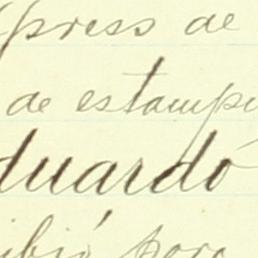 xpress de
de estampi
duardo
ibió para